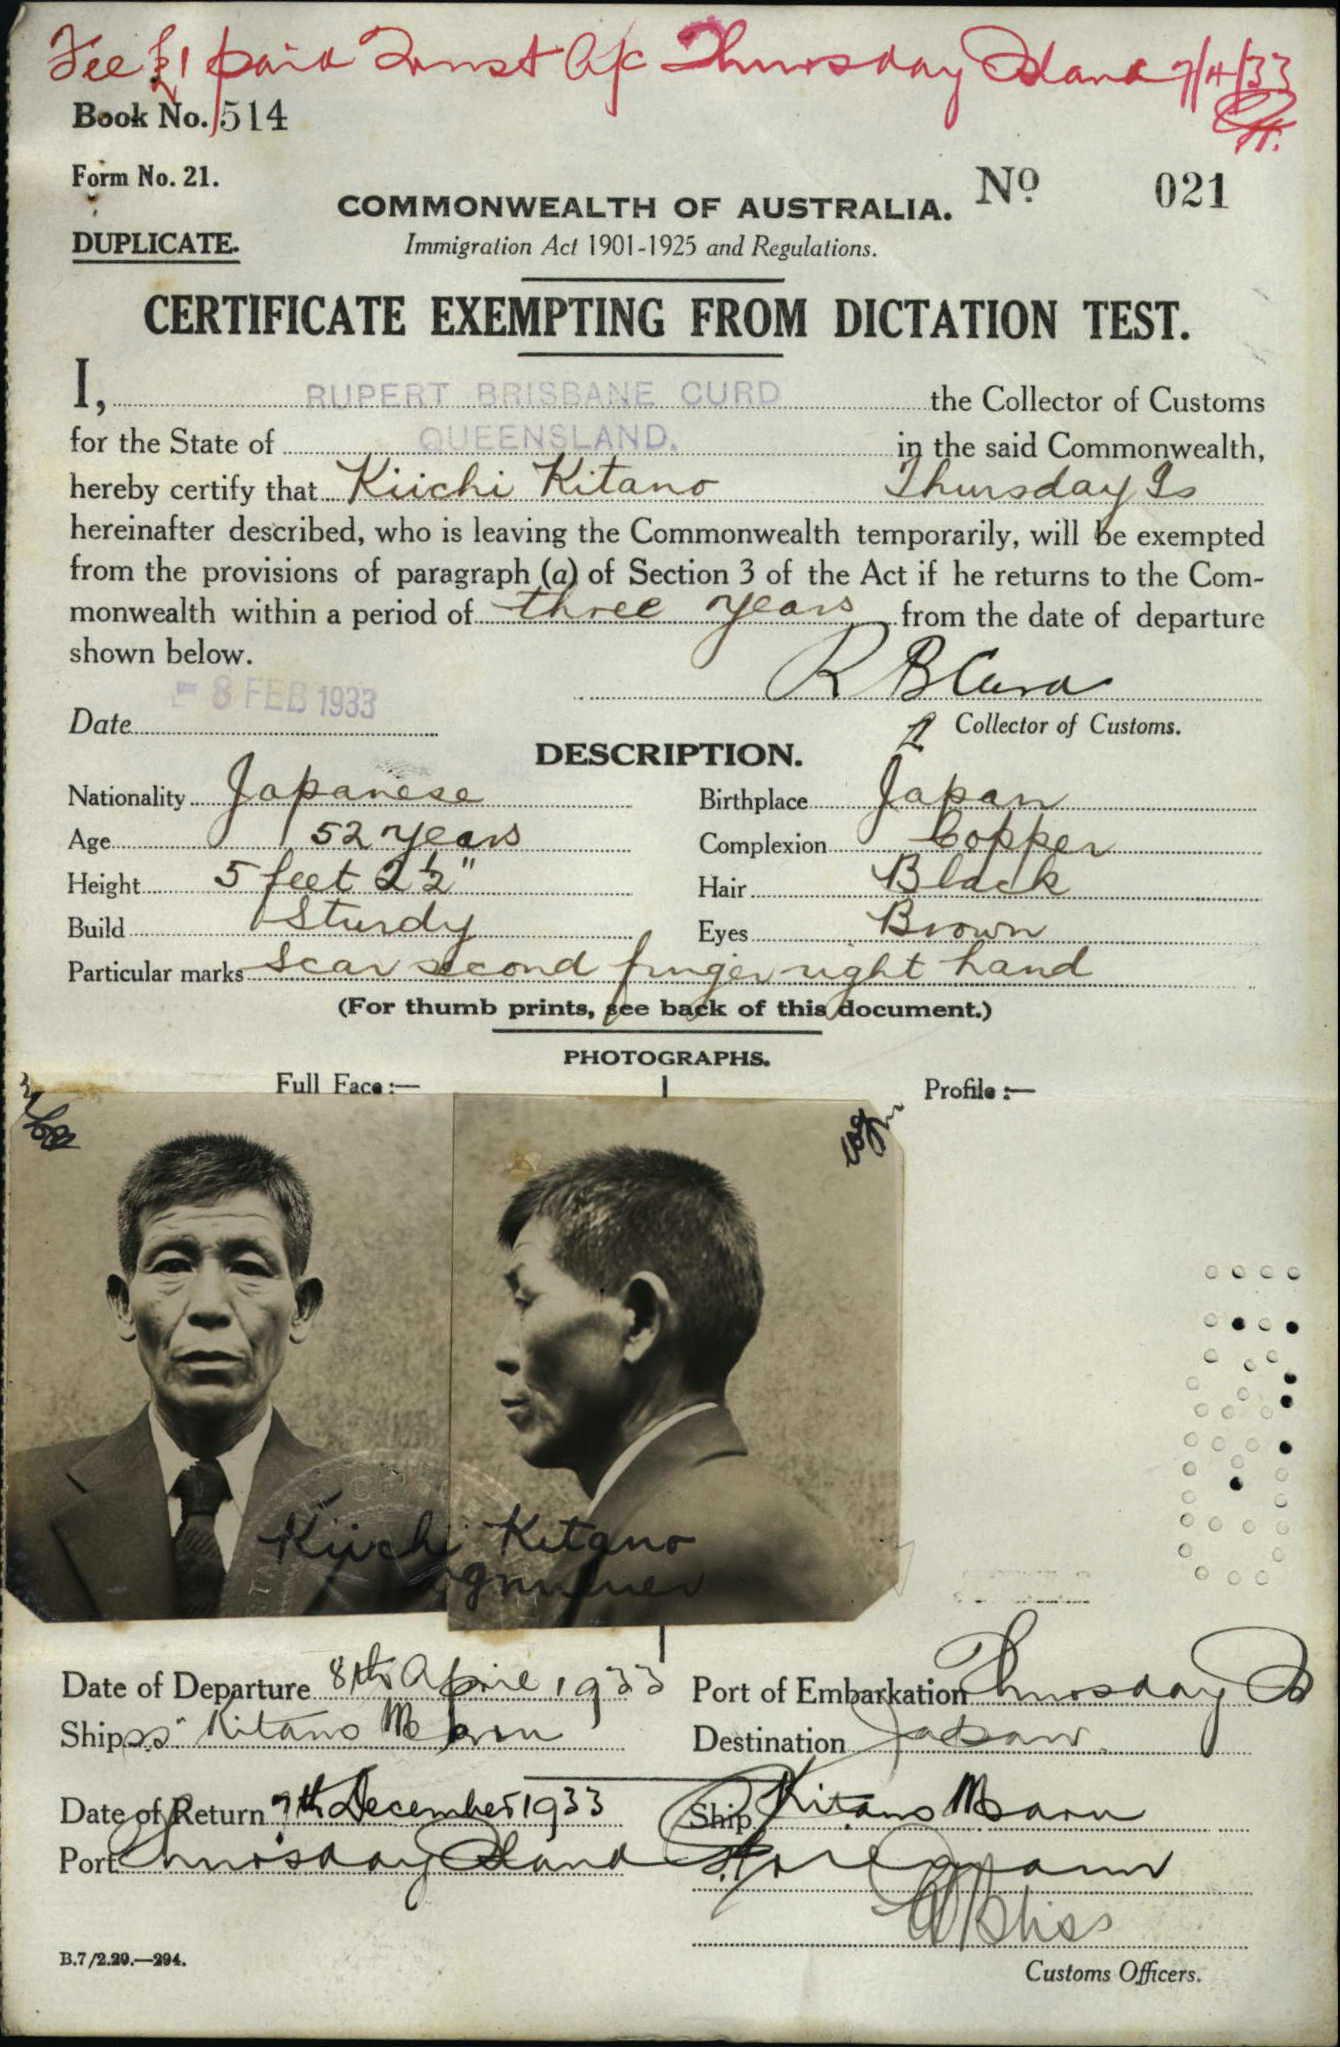 Fee £1 paid Trust A/c Thursday Island 7/4/33
Book No. 514
Form No. 21.
No 021
COMMONWEALTH OF AUSTRALIA.
DUPLICATE.
Immigration Act 1901-1925 and Regulations.
CERTIFICATE EXEMPTING FROM DICTATION TEST.
I, RUPERT BRISBANE CURD the Collector of Customs
for the State of QUEENSLAND. in the said Commonwealth,
hereby certify that Kiichi Kitano Thursday Is
hereinafter described, who is leaving the Commonwealth temporarily, will be exempted
from the provisions of paragraph (a) of Section 3 of the Act if he returns to the Com-
monwealth within a period of three years from the date of departure
shown below.
R B Curd
Date - 8 FEB 1933
Collector of Customs.
DESCRIPTION.
Nationality Japanese Birthplace Japan
Age 52 years Complexion Copper
Height 5 feet 2½" Hair Black
Build Sturdy Eyes Brown
Particular marks Scar second finger right hand
(For thumb prints, see back of this document.)
PHOTOGRAPHS.
Full Face :— Profile :—
Kiichi Kitano
Date of Departure 8th April 1933 Port of Embarkation Thursday Is
Ship "ss" Kitano Maru Destination Japan.
Date of Return 7th December 1933 Ship Kitano Maru
Port Thursday Island
Customs Officers.
B.7/2.29.—294.